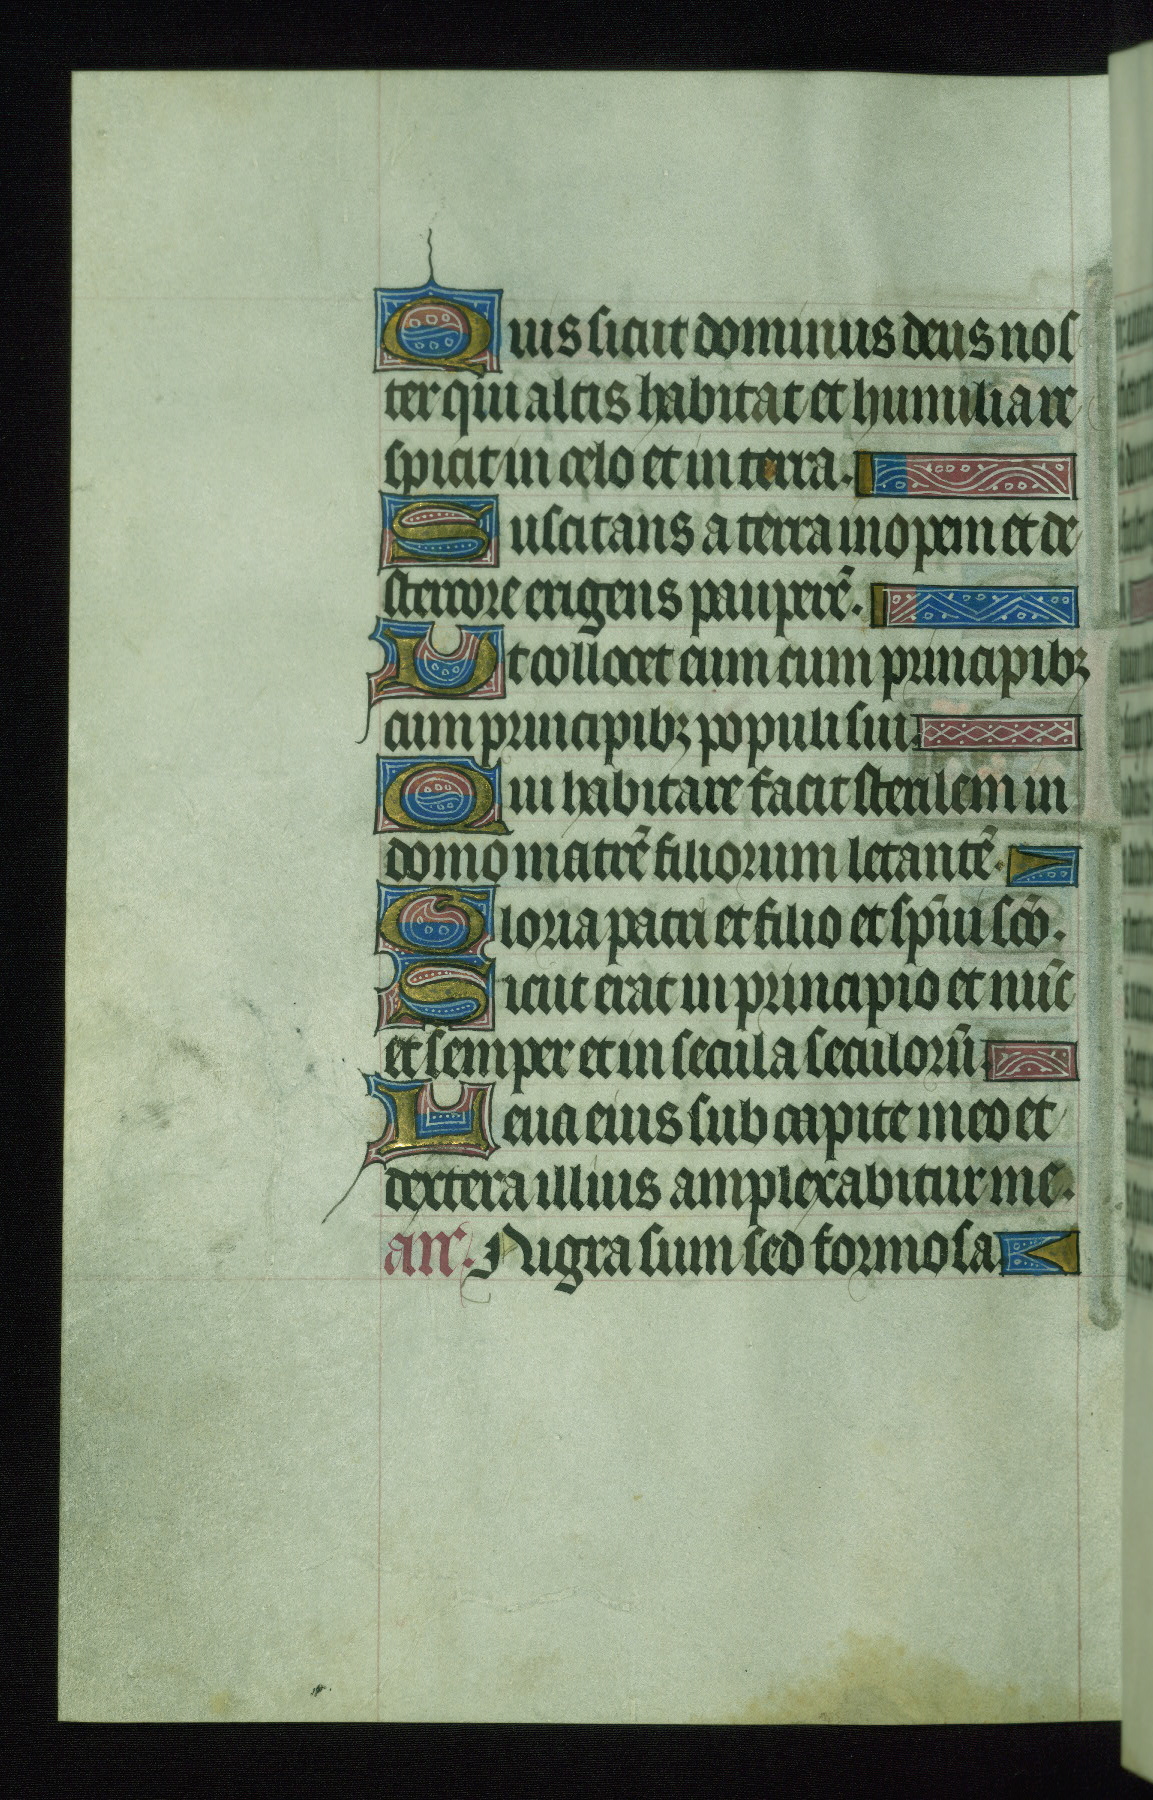 Quis sicut dominus deus nos
ter qui altis habitat et humilia re
spicit in celo et in terra.
Suscitans a terra inopem et de
stercore erigens pauperē.
Ut collocet eum cum principibꝫ
cum principibꝫ populi sui.
Qui habitare facit sterilem in
domo matrē filiorum letantē.
Gloria patri et filio et sp̄ui sc̄o.
Sicut erat in principio et nūc
et semper et in secula seculorū.
Leua eius sub capite meo et
dextera illius amplexabitur me.
an̄. Nigra sum sed formosa.